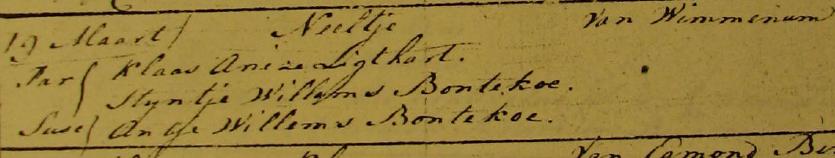 19 Maart Neeltje Van Wimmenum
Par Klaas Arieze Ligthart.
Styntje Willems Bontekoe.
Susc Antje Willems Bontekoe.
Van Egmond Bi